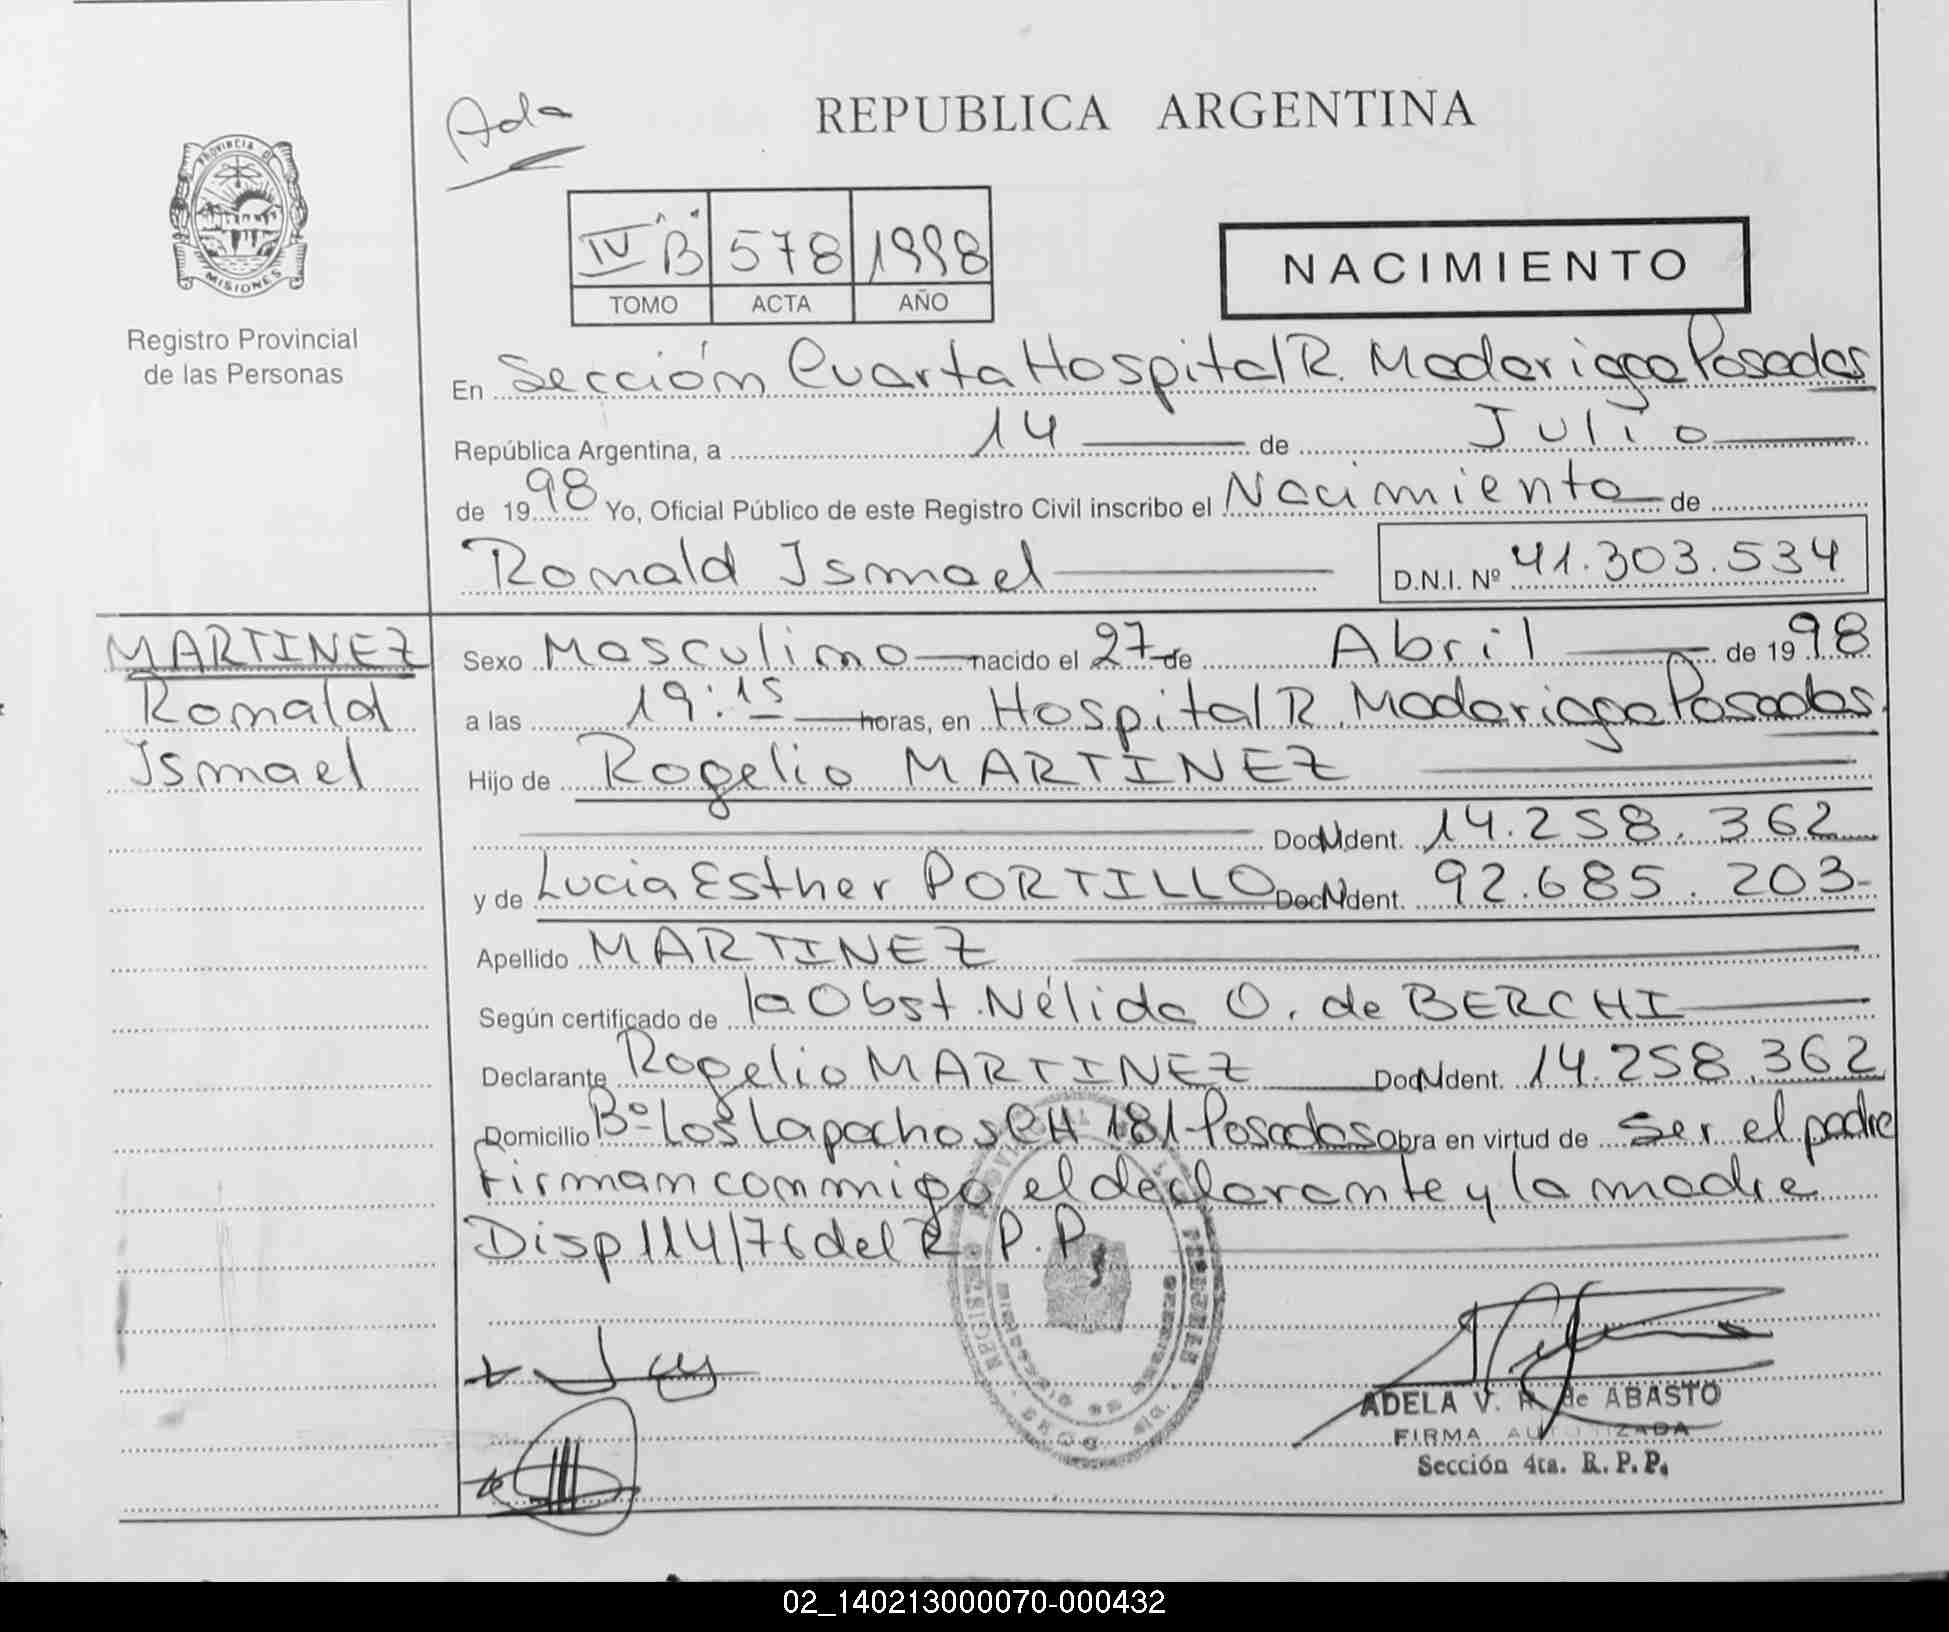 Ada
REPUBLICA ARGENTINA
PROVINCIA DE
MISIONES
Registro Provincial
de las Personas
IV "B" 578 1998
TOMO ACTA AÑO
NACIMIENTO
En Sección Cuarta Hospital R. Madariaga Posadas
República Argentina, a 14 de Julio
de 1998 Yo, Oficial Público de este Registro Civil inscribo el Nacimiento de
Ronald Ismael D.N.I. Nº 41.303.534
MARTINEZ
Ronald
Ismael
Sexo Masculino nacido el 27 de Abril de 1998
a las 19:15 horas, en Hospital R. Madariaga Posadas.
Hijo de Rogelio MARTINEZ
Doc. Ident. 14.258.362
y de Lucia Esther PORTILLO Doc. Ident. 92.685.203-
Apellido MARTINEZ
Según certificado de la Obst. Nélida O. de BERCHI
Declarante Rogelio MARTINEZ Doc. Ident. 14.258.362
Domicilio Bº Los Lapachos CH 181-Posadas obra en virtud de ser el padre
firman conmigo el declarante y la madre
Disp 114/76 del R. P. P.
ADELA V. de ABASTO
FIRMA AUTORIZADA
Sección 4ta. R. P. P.
02_140213000070-000432